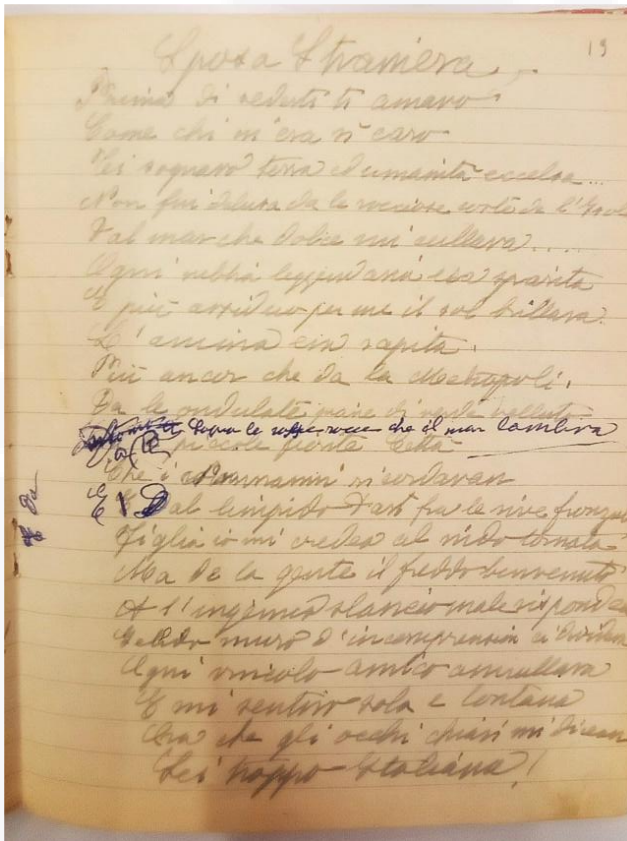 19
Sposa Straniera
Prima di vederti ti amavo
Come chi m'era sì caro
Ti sognavo terra ed umanità eccelsa...
Non fui delusa da le rocciose coste de l'Isola
Dal mar che dolce mi cullava.....
Ogni nebbia leggendaria era sparita
E più arriden per me il sol brillava.
L'anima ein rapita.
Più ancor che da la Metropoli.
Da le ondulate piane di verde velluto
sopra le rocce che il mar lambiva
piccole Città
Che i Normanni ricordavan
E Dal limpido Dart fra le rive
Figlia io mi credea al nido tornata
Ma de la gente il freddo benvenuto
A l'ingenuo slancio male
Gelido muro d'incomprension ci
Ogni vincolo amico annullava
E mi sentivo sola e lontana
Ora che gli occhi chiari mi dicean
Sei troppo Italiana!
E Da